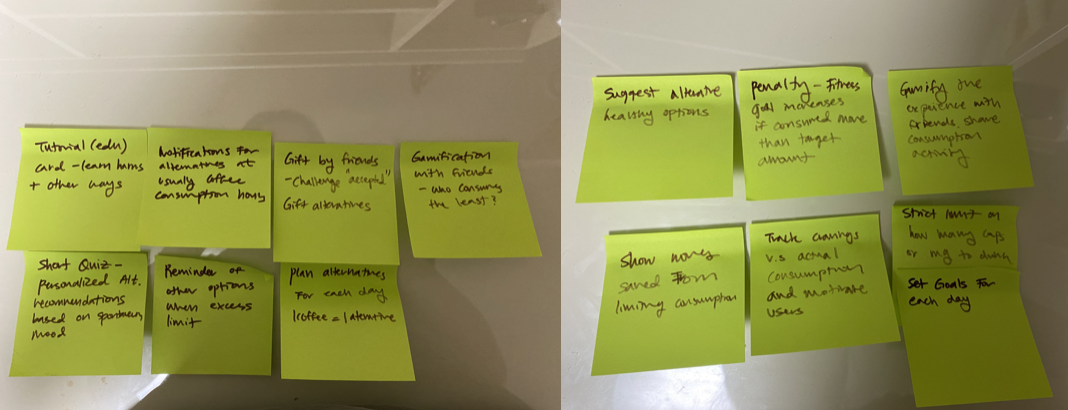 Tutorial (edu)
card - learn harms
+ other ways
Notifications For
alternatives at
usually coffee
consumption hours
Gift by friends
- Challenge "accepted"
Gift alternatives
Gamification
with friends
- who consumes
the least?
Short Quiz -
personalized Alt.
recommendations
based on
mood
Reminder of
other options
when excess
limit
plan alternatives
For each day
1 coffee = 1 alternative
Suggest alternative
healthy options
penalty - Fitness
goal increases
if consumed more
than target
amount
Gamify the
experience with
friends, share
consumption
activity
Show money
saved From
limiting consumption
Track cravings
v.s actual
consumption
and motivate
users
Strict limit on
how many cups
or mg to drink
Set Goals For
each day